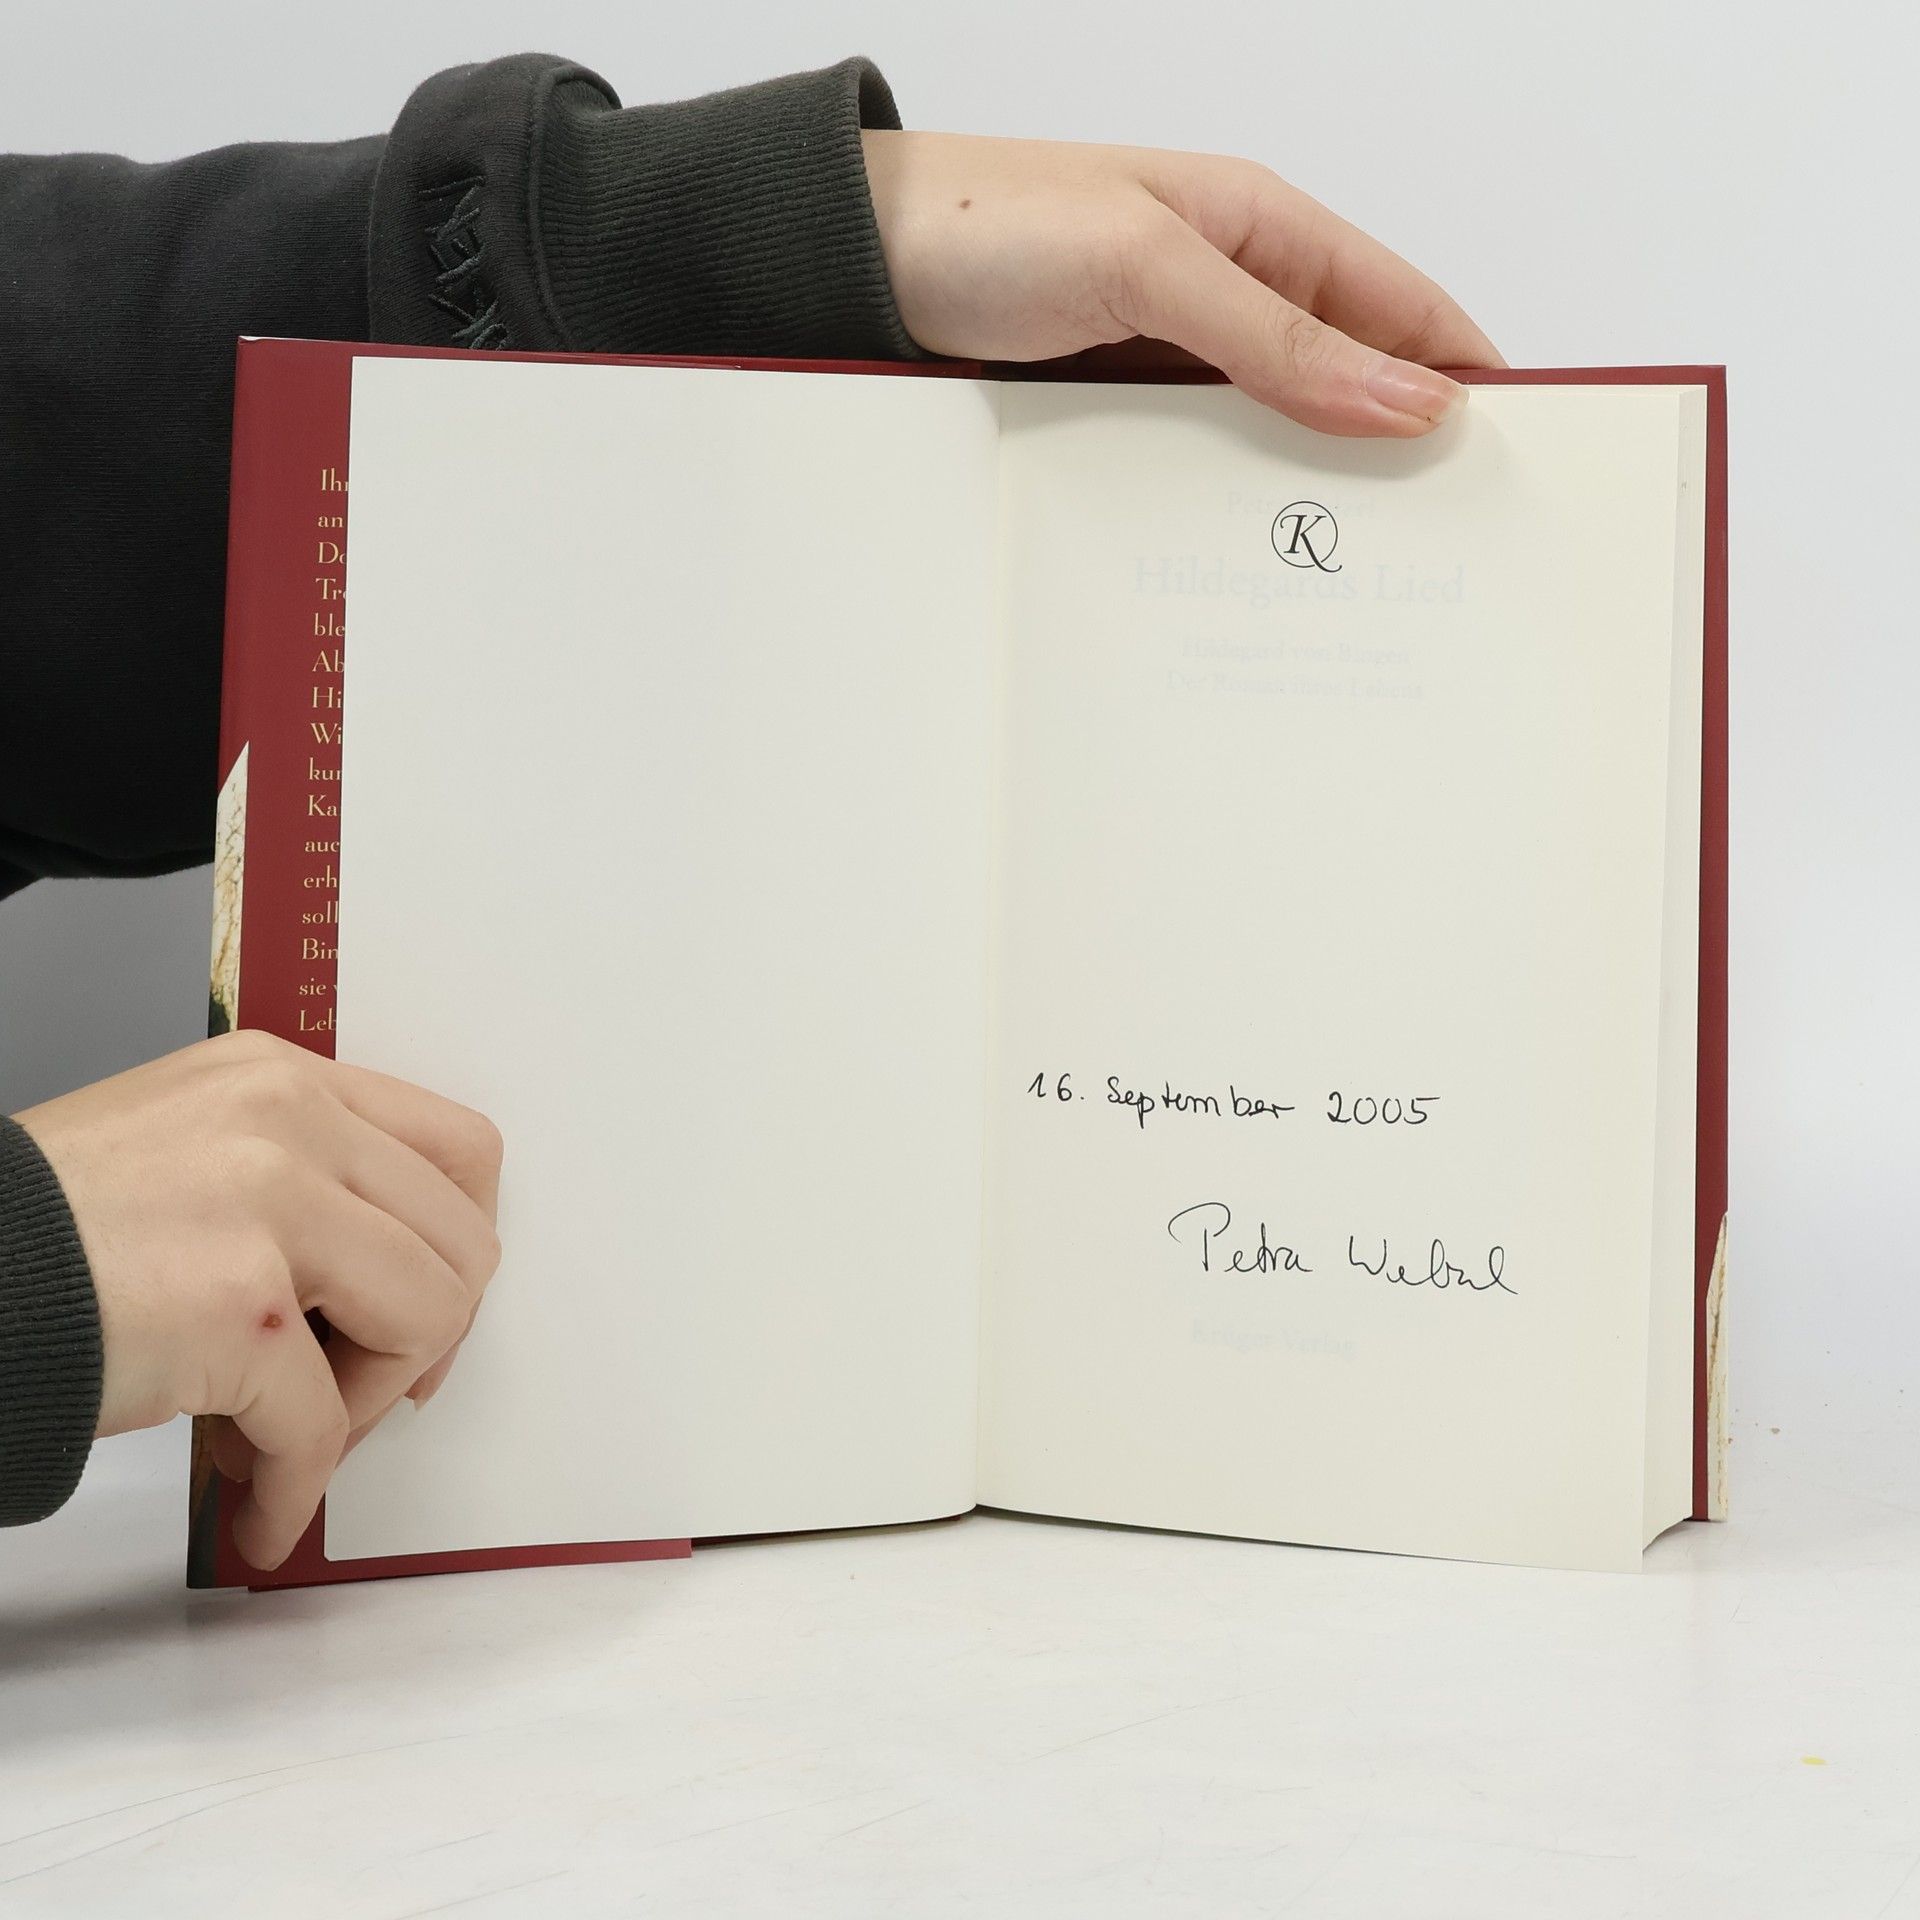 Ihr
an
De
Tre
ble
Ab
Hi
Wi
kur
Ka
auc
erh
soll
Bin
sie
Leb
K
Hildegards Lied
Hildegard von Bingen
Der Roman ihres Lebens
16. September 2005
Petra Welzel
Krüger Verlag